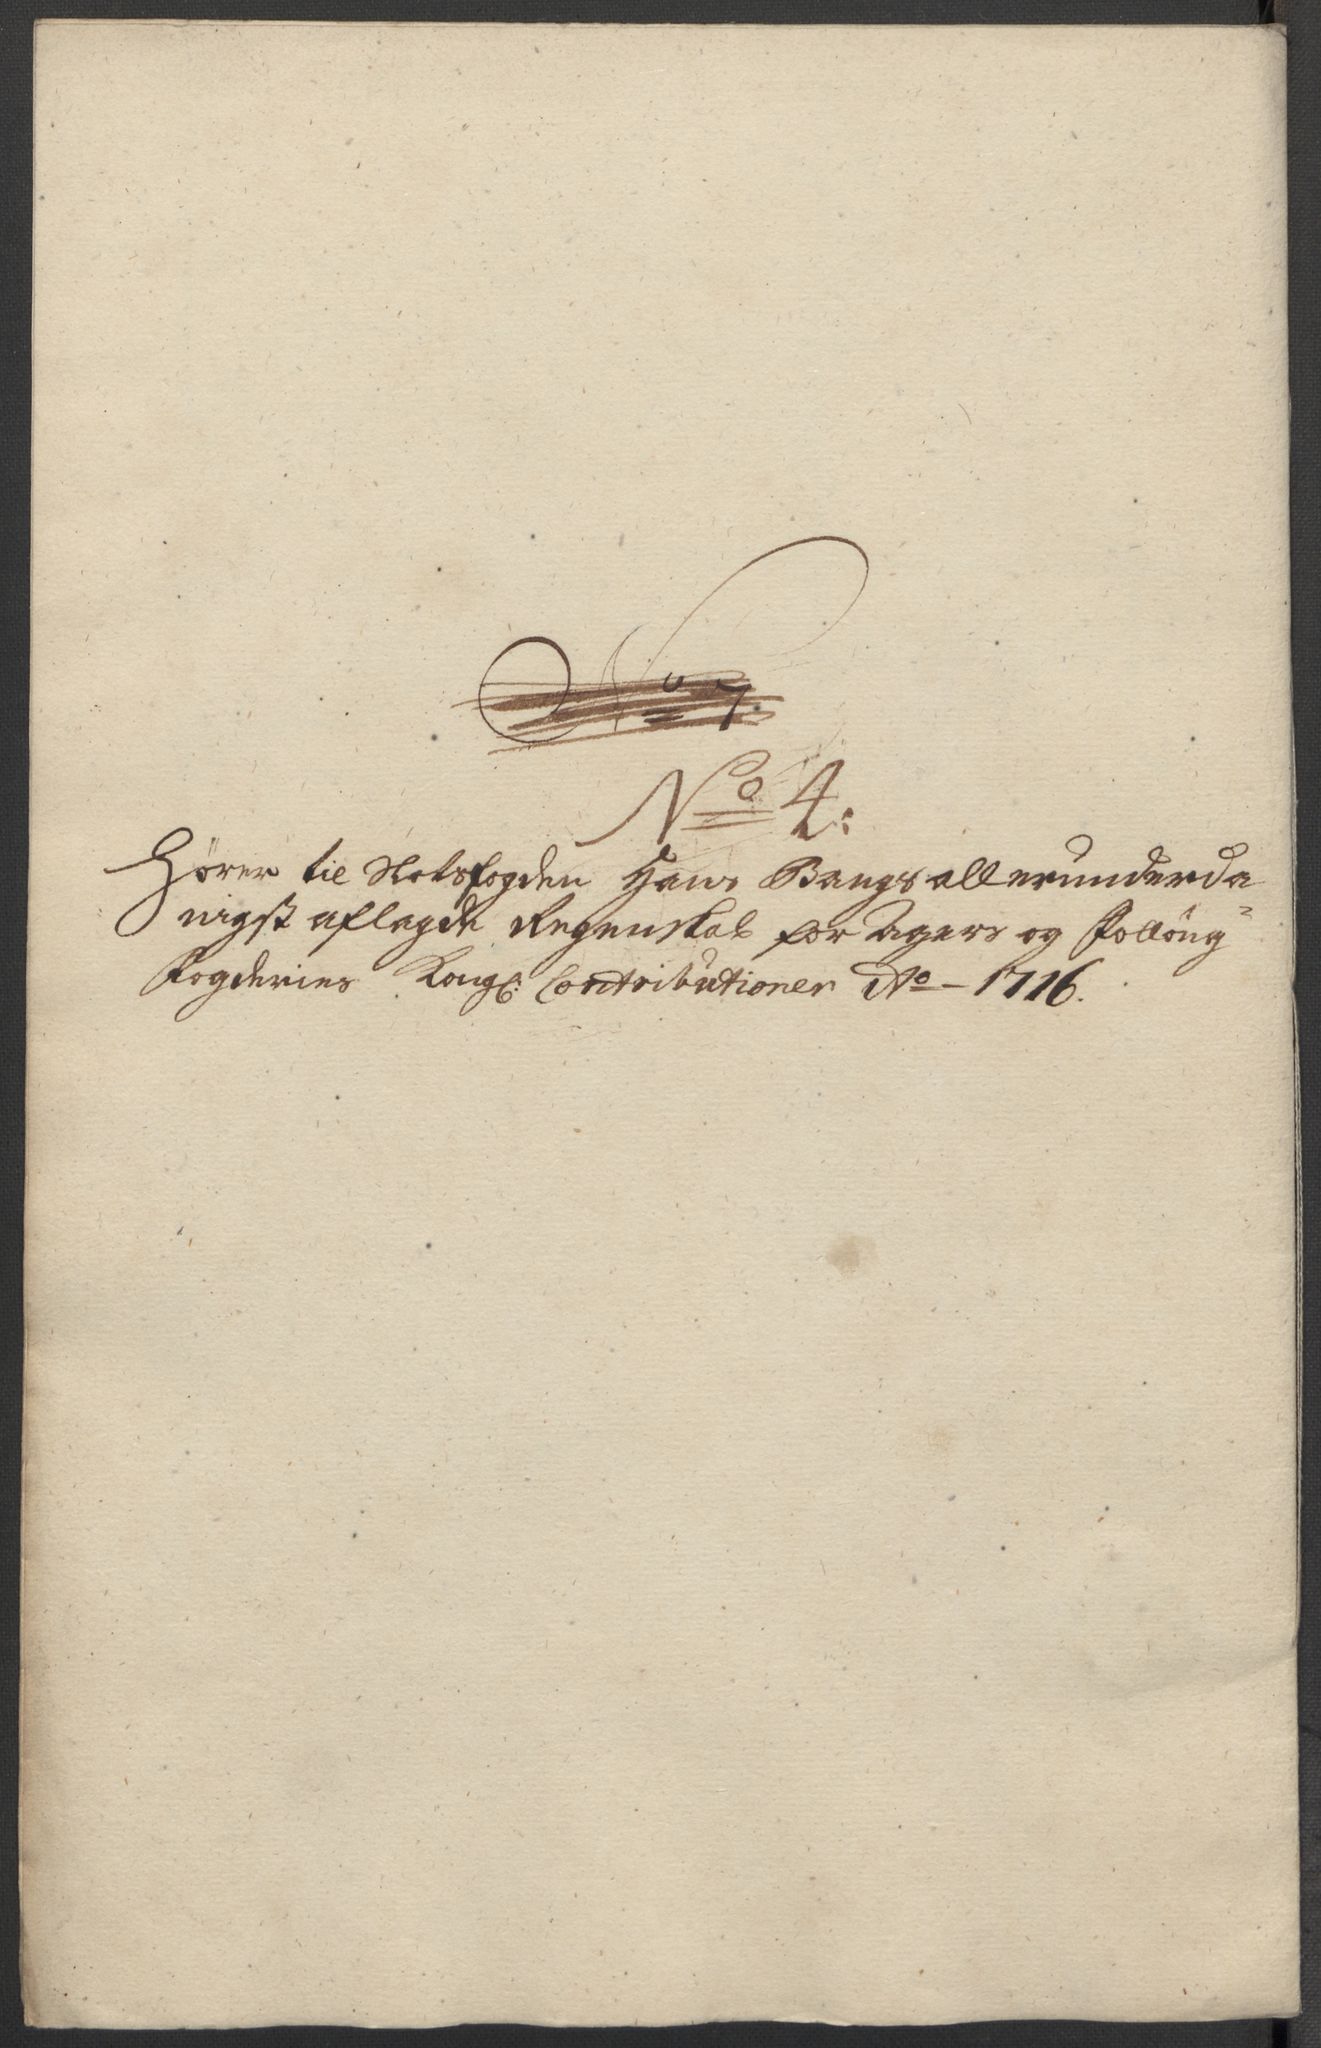 No 7.
No 4:
Hörer til Slotsfogden Hans Bangs allerunderda
nigst aflagde Regenskab for Agers og Follöug
Fogderies Kongl: Contributioner Ao - 1716.